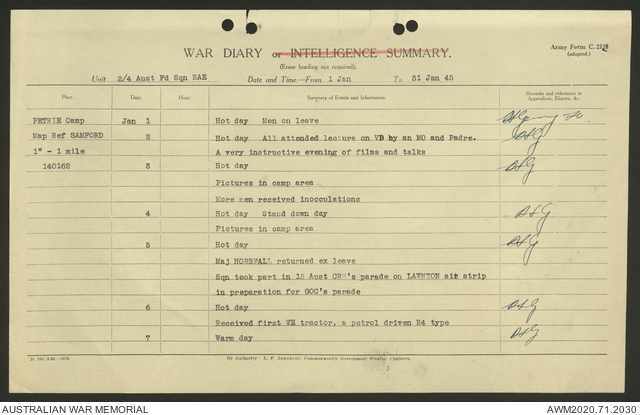 WAR DIARY or INTELLIGENCE SUMMARY.
(Erase heading not required).
Army Form C.
(adapted.)
Unit 2/4 Aust Fd Sqn RAE Date and Time—From 1 Jan To 31 Jan 45
Place. Date. Hour. Summary of Events and Information. Remarks and references to
Appendices, Diaries, &c.
PETRIE Camp Jan 1 Hot day Men on leave
Map Ref SANFORD 2 Hot day All attended lecture on VD by an MO and Padre.
1" - 1 mile A very instructive evening of films and talks
140162 3 Hot day
Pictures in camp area
More men received inocculations
4 Hot day Stand down day
Pictures in camp area
5 Hot day
Maj HORSFALL returned ex leave
Sqn took part in 15 Aust CRE's parade on LAWNTON air strip
in preparation for GOC's parade
6 Hot day
Received first WE tractor, a petrol driven R4 type
7 Warm day
By Authority: L. F. Johnston, Commonwealth Government Printer, Canberra.
AUSTRALIAN WAR MEMORIAL AWM2020.71.2030